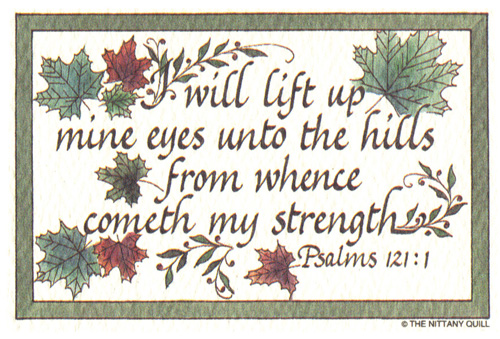 I will lift up
mine eyes unto the hills
from whence
cometh my strength
Psalms 121:1
© THE NITTANY QUILL